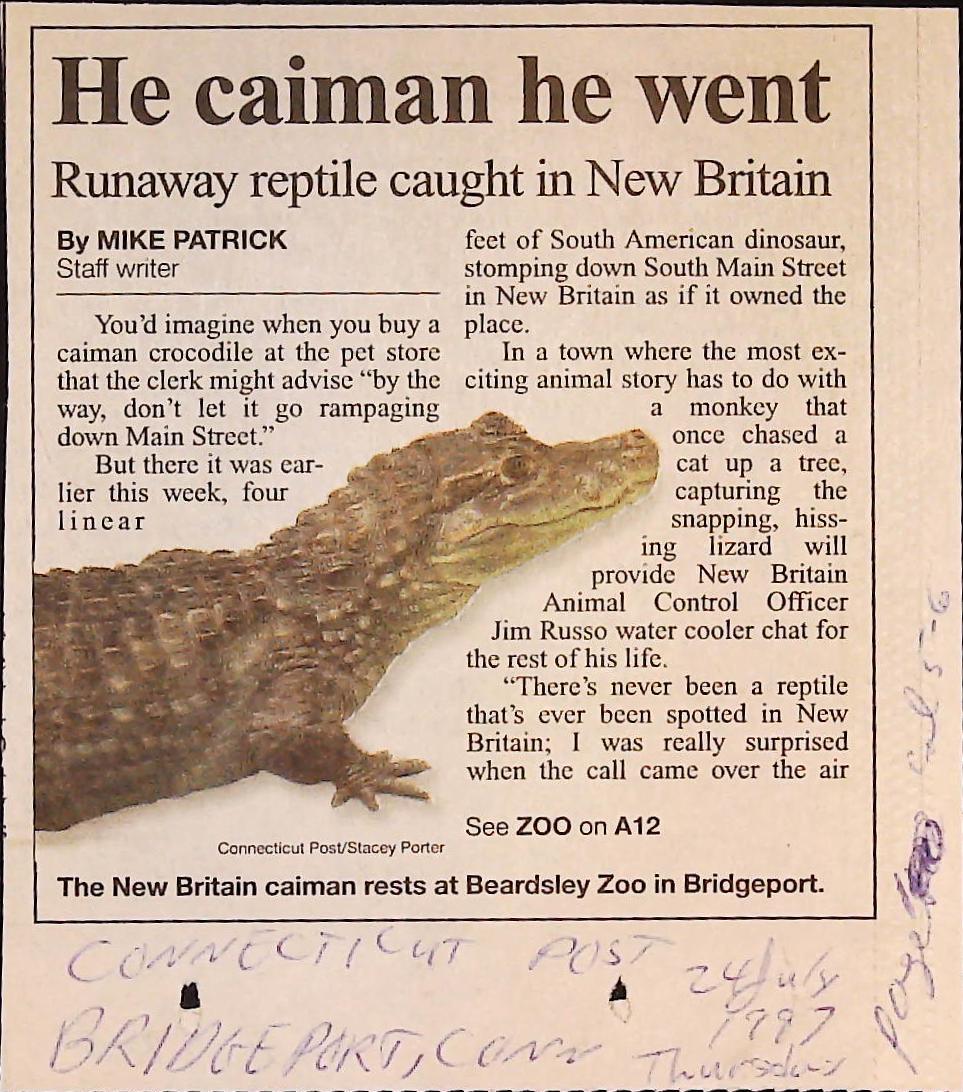 He caiman he went
Runaway reptile caught in New Britain
By MIKE PATRICK
Staff writer
You'd imagine when you buy a
caiman crocodile at the pet store
that the clerk might advise “by the
way, don't let it go rampaging
down Main Street.”
But there it was ear-
lier this week, four
linear
feet of South American dinosaur,
stomping down South Main Street
in New Britain as if it owned the
place.
In a town where the most ex-
citing animal story has to do with
a monkey that
once chased a
cat up a tree,
capturing the
snapping, hiss-
ing lizard will
provide New Britain
Animal Control Officer
Jim Russo water cooler chat for
the rest of his life.
“There's never been a reptile
that's ever been spotted in New
Britain; I was really surprised
when the call came over the air
See ZOO on A12
Connecticut Post/Stacey Porter
The New Britain caiman rests at Beardsley Zoo in Bridgeport.
CONNECTICUT POST
BRIDGEPORT, CONN
24 July
1997
Thursday
page col 5-6